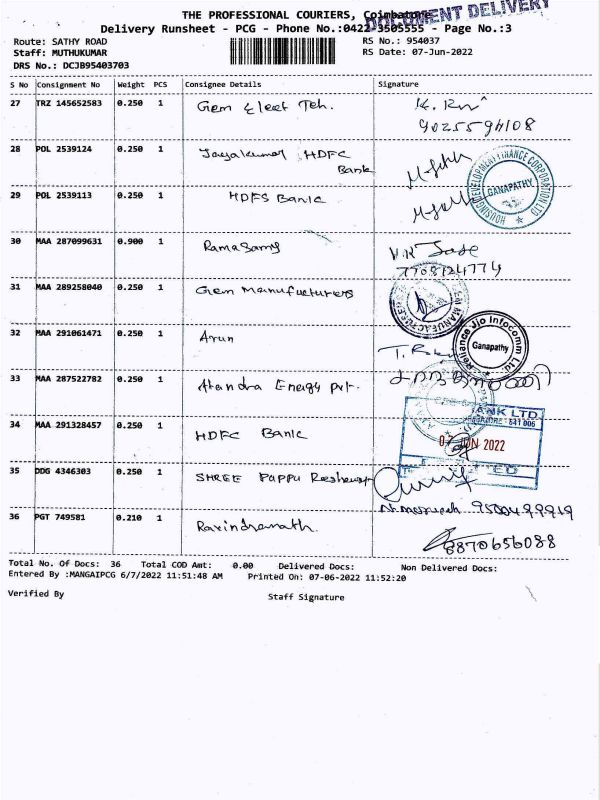 THE PROFESSIONAL COURIERS, Coimbatore
DOCUMENT DELIVERY
Delivery Runsheet - PCG - Phone No.:0422-3505555 - Page No.:3
Route: SATHY ROAD
RS No.: 954037
Staff: MUTHUKUMAR
RS Date: 07-Jun-2022
DRS No.: DCJB95403703
S No Consignment No Weight PCS Consignee Details Signature
27 TRZ 145652583 0.250 1 Gem Elect Teh.
28 POL 2539124 0.250 1 Jayakumar HDFC
Bank
29 POL 2539113 0.250 1 HDFS Bank
HOUSING DEVELOPMENT FINANCE CORPORATION LTD
GANAPATHY
30 MAA 287099631 0.900 1 Ramasamy
7708124774
31 MAA 289258040 0.250 1 Gem Manufucturers
32 MAA 291061471 0.250 1 Arun
Reliance Jio Infocomm Ltd.
Ganapathy
33 MAA 287522782 0.250 1 Energy Pvt.
34 MAA 291328457 0.250 1 HDFC Bank
BANK LTD
641 006
07 JUN 2022
35 DDG 4346303 0.250 1 SHREE Pappu
36 PGT 749581 0.210 1 Ravindranath.
8870656088
Total No. Of Docs: 36 Total COD Amt: 0.00 Delivered Docs: Non Delivered Docs:
Entered By :MANGAIPCG 6/7/2022 11:51:48 AM Printed On: 07-06-2022 11:52:20
Verified By Staff Signature